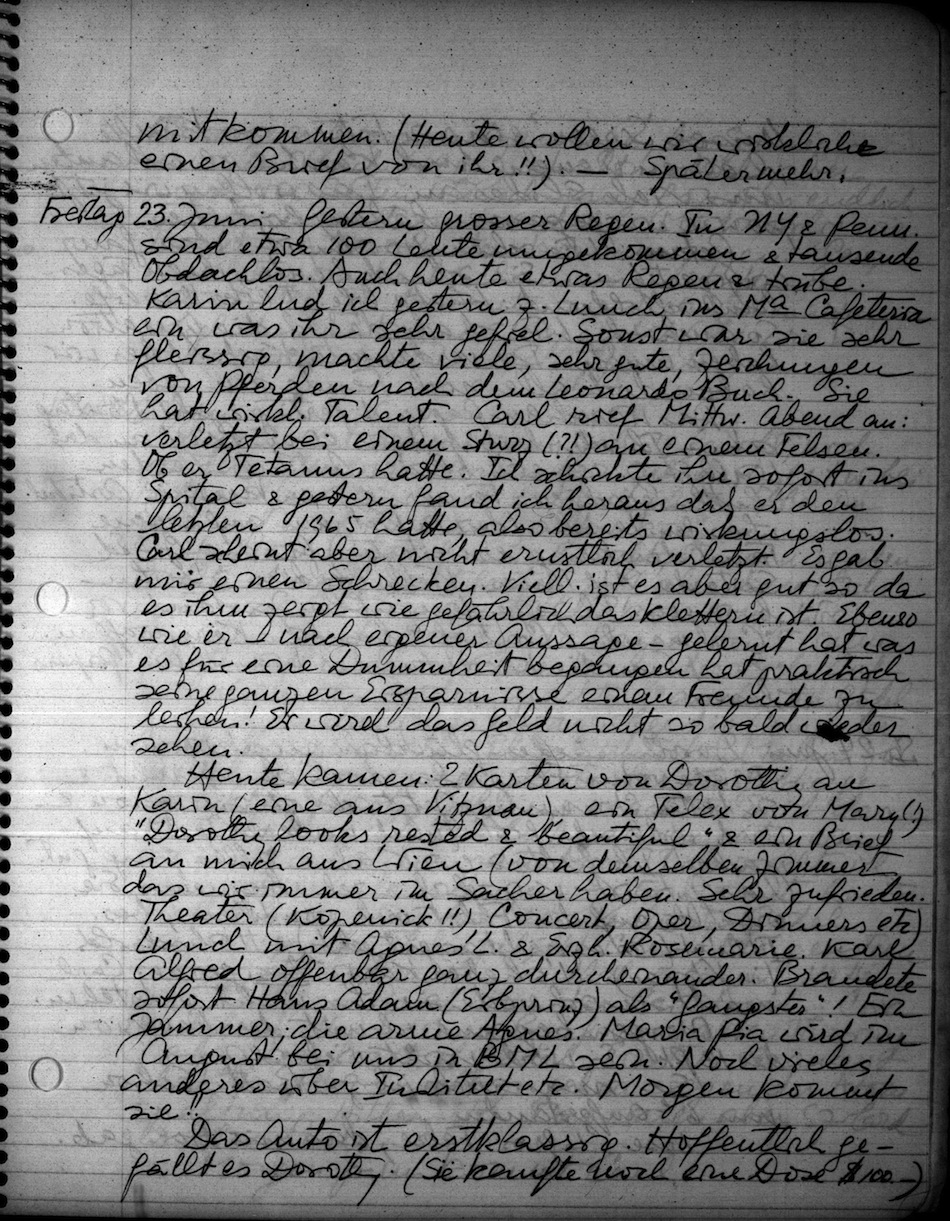 mitkommen. (Heute wollen wir wirklich
einen Brief von ihr!!). — Später mehr.
Freitag 23. Juni Gestern grosser Regen. In NY & Penn.
sind etwa 100 Leute umgekommen & tausende
Obdachlos. Auch heute etwas Regen & trübe.
Karin lud ich gestern z. Lunch ins Ma Cafeteria
ein was ihr sehr gefiel. Sonst war sie sehr
fleissig, machte viele, sehr gute, Zeichnungen
von Pferden nach dem Leonardo Buch. Sie
hat wirkl. Talent. Carl rief Mittw. Abend an:
verletzt bei einem Sturz (?!) an einem Felsen.
Ob er Tetanus hatte. Ich schickte ihn sofort ins
Spital & gestern fand ich heraus das er den
letzten 1965 hatte, also bereits wirkungslos.
Carl scheint aber nicht ernstlich verletzt. Es gab
mir einen Schrecken. Viell. ist es aber gut so da
es ihm zeigt wie gefährlich das Klettern ist. Ebenso
wie er – nach eigener Aussage – gelernt hat was
es für eine Dummheit begangen hat praktisch
seine ganzen Ersparnisse einem Freunde zu
leihen! Er wird das Geld nicht so bald wieder
sehen.
Heute kamen: 2 Karten von Dorothy an
Karin (eine aus Vitznau), ein Telex von Mary (!)
"Dorothy looks rested & beautiful" & ein Brief
an mich aus Wien (von demselben Zimmer
das wir immer im Sacher haben. Sehr zufrieden.
Theater (Köpenick!!), Concert, Oper, Dinners etc)
Lunch mit Agnes L. & Erzh. Rosemarie. Karl
Alfred offenbar ganz durcheinander. Brandete
sofort Hans Adam (Erbprinz) als "Gangster"! Ein
Jammer; die arme Agnes. Maria Pia wird im
August bei uns in BML sein. Noch vieles
anderes über Institut etc. Morgen kommt
sie!!
Das Auto ist erstklassig. Hoffentlich ge-
fällt es Dorothy. (Sie kaufte noch eine Dose $100.–)